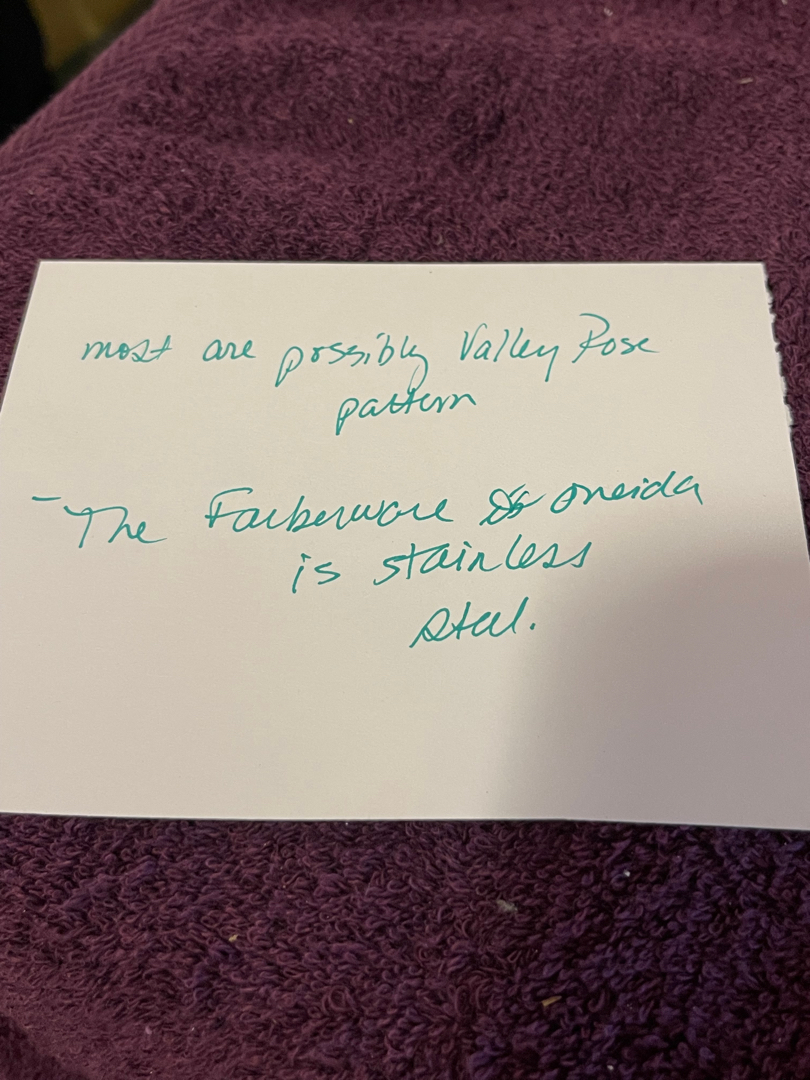 most are possibly Valley Rose
pattern
- The Farberware & Oneida
is stainless
steel.